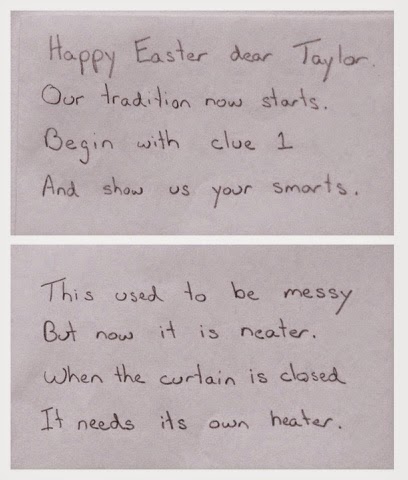 Happy Easter dear Taylor.
Our tradition now starts.
Begin with clue 1
And show us your smarts.
This used to be messy
But now it is neater.
When the curtain is closed
It needs its own heater.